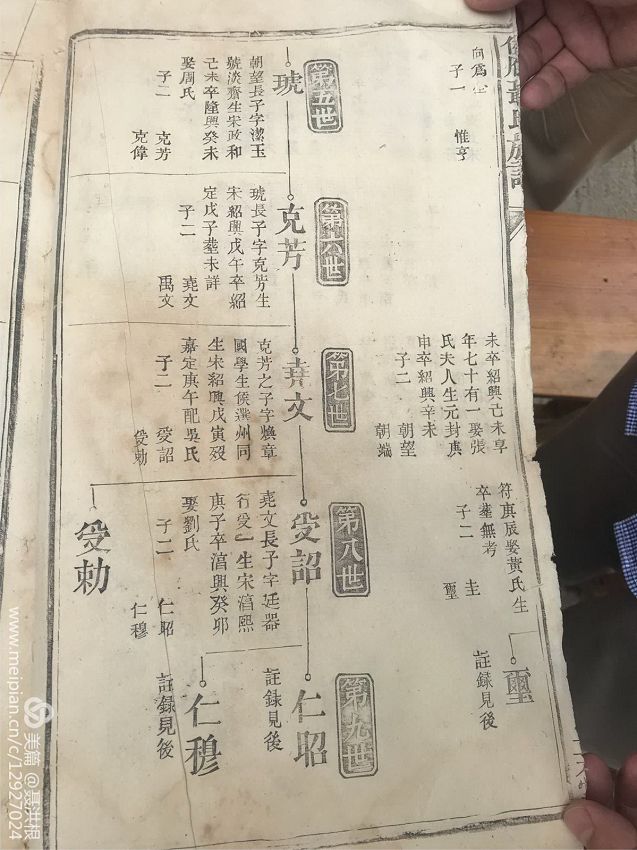 氏族譜
子一
惟亨
未卒紹興己未享
年七十有一娶張
氏夫人生元封庚
申卒紹興辛未
子二
朝望
朝端
符庚辰娶黃氏生
卒塟無考
子二
圭
璽
璽
註録見後
第五世
琥
朝望長子字潔玉
號淡齋生宋政和
己未卒隆興癸未
娶周氏
子二
克芳
克偉
第六世
克芳
琥長子字克芳生
宋紹興戊午卒紹
定戊子塟未詳
子二
堯文
禹文
第七世
堯文
克芳之子字煥章
國學生候選州同
生宋紹興戊寅歿
嘉定庚午配吳氏
子二
受詔
受勅
第八世
受詔
堯文長子字廷器
行受一生宋淳熙
庚子卒淳興癸卯
娶劉氏
子二
仁昭
仁穆
受勅
第九世
仁昭
註録見後
仁穆
註録見後
美篇 @聂洪根
www.meipian.cn/c/12927024